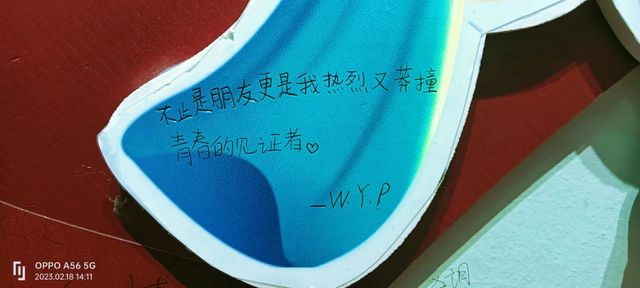 不止是朋友更是我热烈又莽撞
青春的见证者♡
—W.Y.P
OPPO A56 5G
2023.02.18 14:11